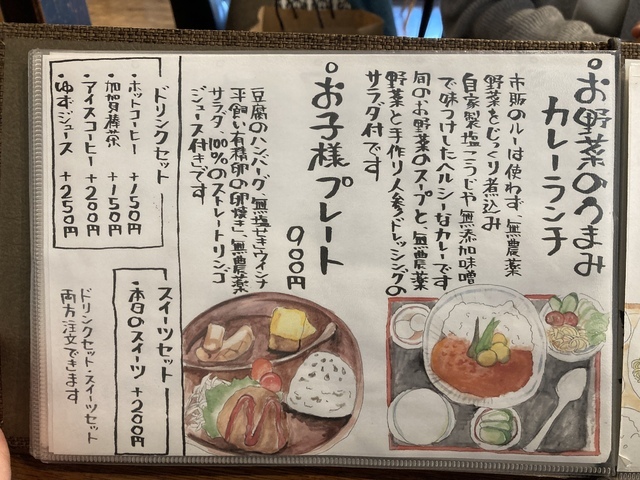 お野菜のうまみ
カレーランチ
市販のルーは使わず、無農薬
野菜をじっくり煮込み
自家製塩こうじや無添加味噌
で味つけしたヘルシーなカレーです
旬のお野菜のスープと、無農薬
野菜と手作り人参ドレッシングの
サラダ付です
お子様プレート
900円
豆腐のハンバーグ、無塩せきウインナー
平飼い有精卵の卵焼き、無農薬
サラダ、100%のストレートリンゴ
ジュース付きです
ドリンクセット
・ホットコーヒー +150円
・加賀棒茶 +150円
・アイスコーヒー +200円
・ゆずジュース +250円
スイーツセット
・本日のスイーツ +200円
ドリンクセット・スイーツセット
両方注文できます